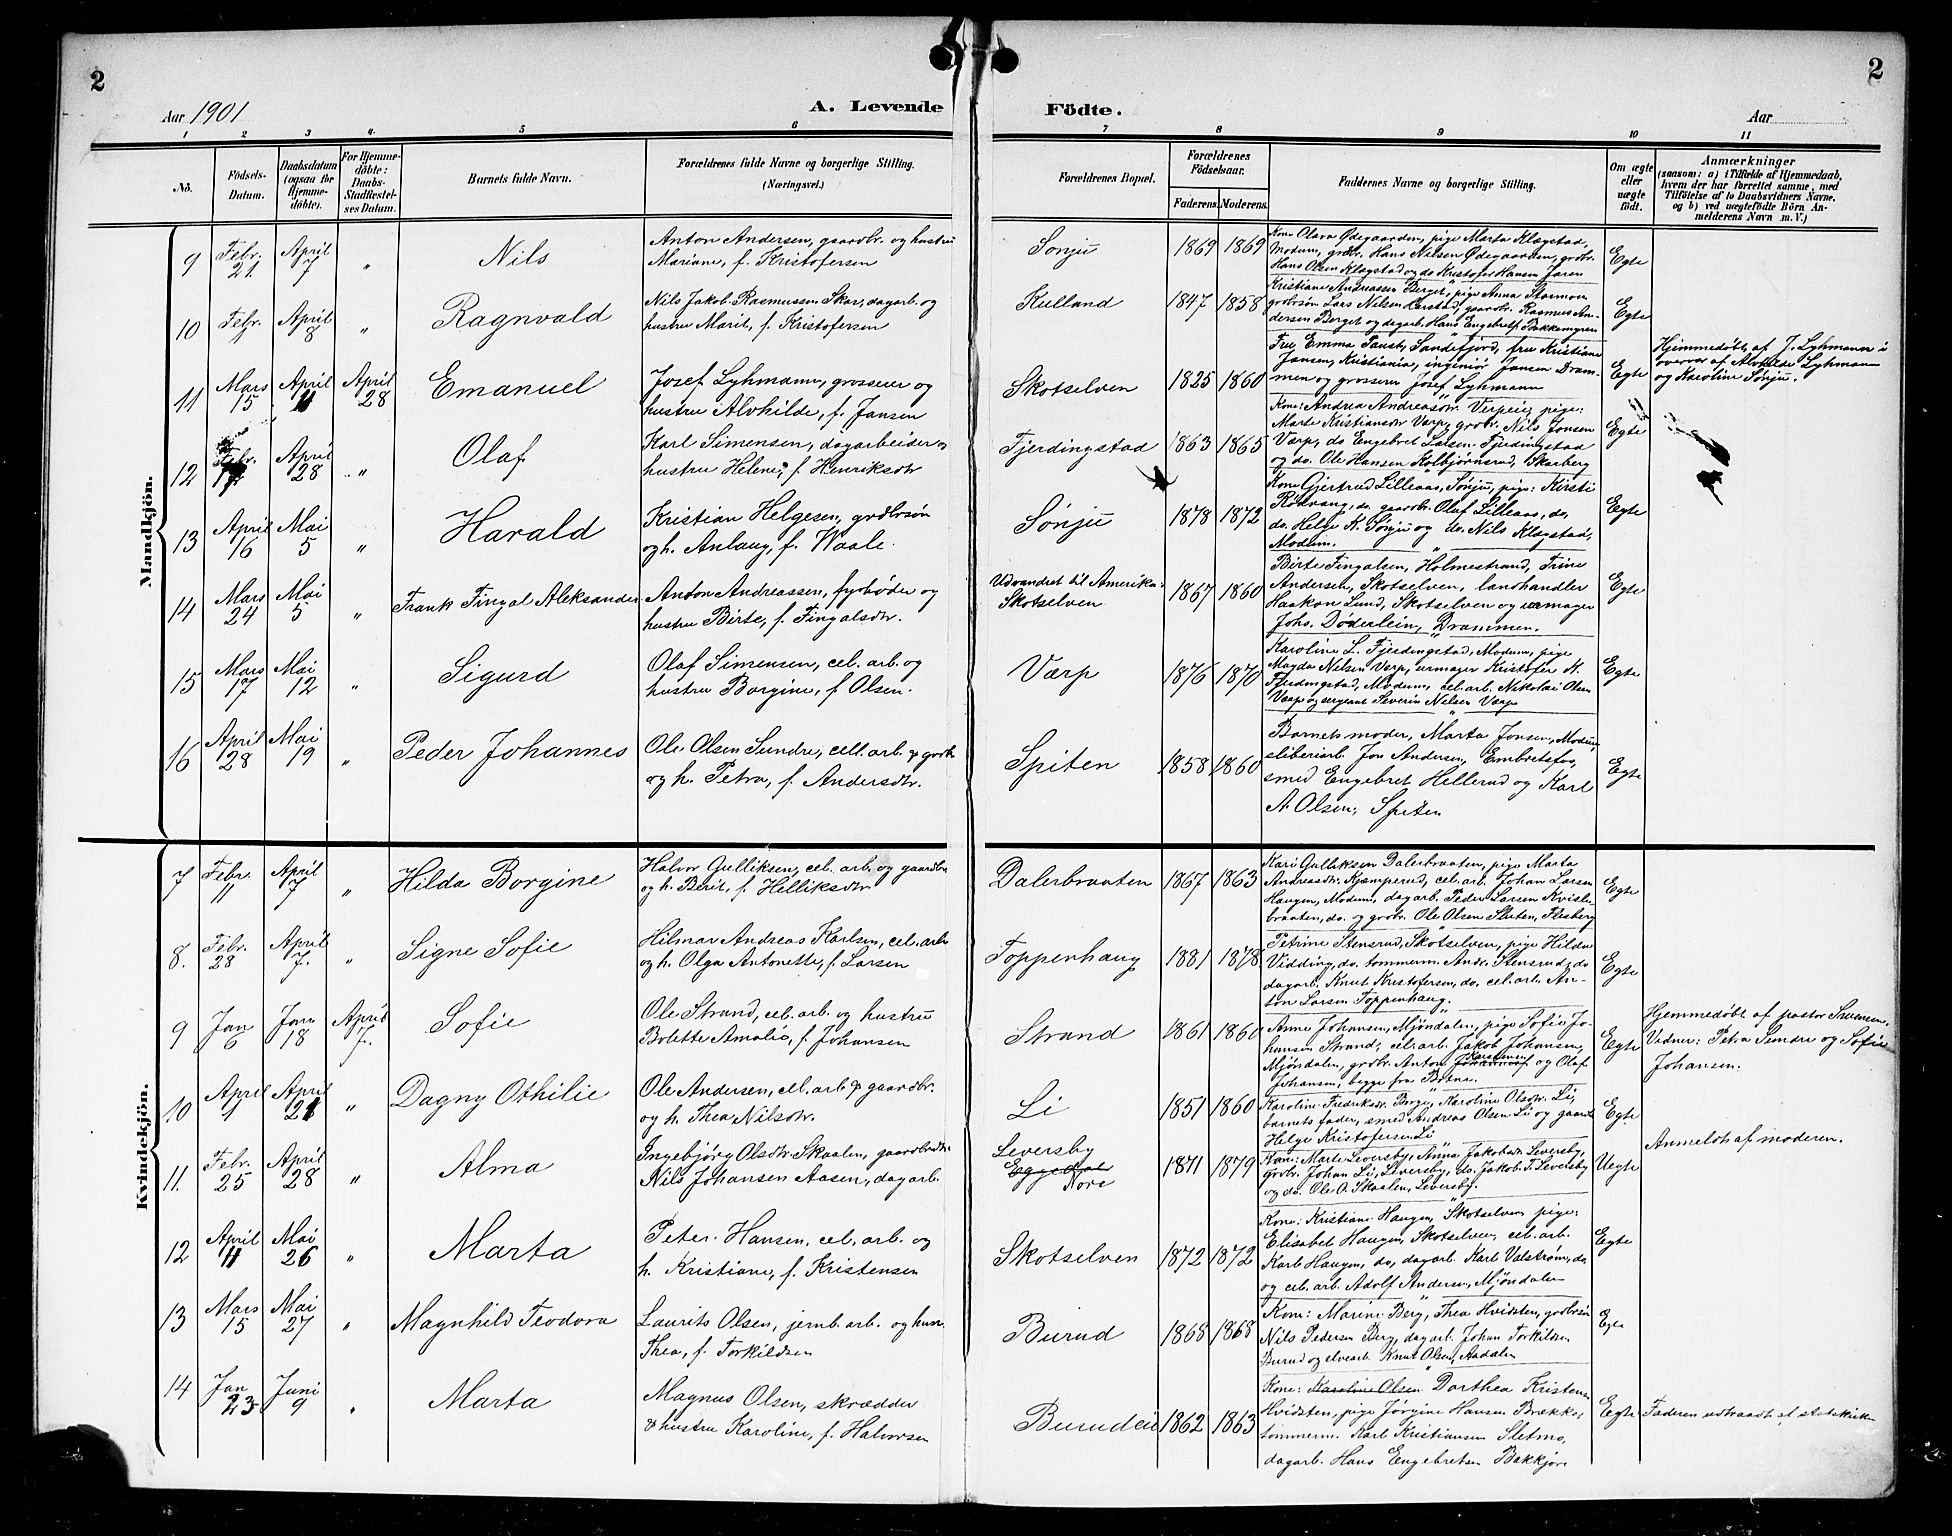 2
2
Aar 1901
A. Levende Födte.
Aar
1 2 3 4. 5 6 7 8 9 10 11
No.
Födsels-Datum.
Daabsdatum (ogsaa for Hjemme-döbte).
For Hjemme-döbte: Daabs-Stadfæstel-ses Datum.
Barnets fulde Navn.
Forældrenes fulde Navne og borgerlige Stilling.
(Næringsvei.)
Forældrenes Bopæl.
Forældrenes Födselsaar.
Faderens. Moderens.
Faddernes Navne og borgerlige Stilling.
Om ægte eller uægte födt.
Anmærkninger
(saasom: a) i Tilfælde af Hjemmedaab,
hvem der har forrettet samme, med
Tilföielse af to Daabsvidners Navne.
og b) ved uægtefödte Börn An-
melderens Navn m. V.)
Mandkjön.
9 Febr. 21 April 7 " Nils
Anton Andersen, gaardbr. og hustru
Mariane, f. Kristofersen
Sønju 1869 1869
Kone Olava Ødegaarden, pige Marta Klægstad,
Modum, grdbr. Hans Nilsen Ødegaarden, grdbr.
Hans Olsen Klægstad og do Kristofer Hansen Jaren
Egte
10 Febr. April 8 " Ragnvald
Nils Jakob Rasmussen Skar, dagarb. og
hustru Marit, f. Kristofersen
Kulland 1847 1858
Kristiane Andreassen Berget, pige Anna Stormoen
grdbrsøn Lars Nilsen Harstad, gaardbr. Rasmus An-
dersen Berget og dagarb. Hans Engebretf. Bakkemyren
Egte
11 Mars 15 April 11 April 28 Emanuel
Josef Lyhmann, grosserer og
hustru Alvhilde, f. Jansen
Skotselven 1825 1860
Fru Emma Paust, Sandefjord, fru Kristiane
Jansen, Kristiania, ingeniør Jansen Dram-
men og grosserer Josef Lyhmann
Egte
Hjemmedøbt af J. Lyhmann i
overvær af Alvhilde Lyhmann
og Karoline Sønju.
12 Febr. 17 April 28 " Olaf
Karl Simensen, dagarbeider og
hustru Helene, f. Henriksdtr
Fjerdingstad 1863 1865
Kone: Andrea Andreasdtr. Verpeie, pige:
Marte Kristiansdtr Værp, grdbr. Nils Jonsen
Værp, do Engebret Larsen Fjerdingstad
og do. Ole Hansen Kolbjørnsrud, Skarberg
Egte
13 April 16 Mai 5 " Harald
Kristian Helgesen, grdbrsøn
og h. Anlaug, f. Waale.
Sønju 1878 1872
Kone Gjertrud Lilleaas, Sønju, pige: Kirsti
Rødvang, do. gaardbr. Olaf Lilleaas, do,
do. Helge K. Sønju og do. Nils Klægstad,
Modum.
Egte
14 Mars 24 Mai 5 " Frank Fingal Aleksander
Anton Andreassen, fyrbøder og
hustru Birte, f. Fingalsdtr.
Udvandret til Amerika.
Skotselven 1867 1860
Birte Fingalsen, Holmestrand, Trine
Andersen, Skotselven, landhandler
Haakon Lund, Skotselven og urmager
Johs. Døderlein, Drammen.
Egte
15 Mars 17 Mai 12 " Sigurd
Olaf Simensen, cel. arb. og
hustru Borgine, f. Olsen.
Værp 1876 1870
Karoline L. Fjerdingstad, Modum, pige
Magda Nilsen Værp, urmager Kristofer N.
Fjerdingstad, Modum, cel. arb. Nikolai Olsen
Værp og sergeant Severin Nilsen Værp
Egte
16 April 28 Mai 19 " Peder Johannes
Ole Olsen Sundre, cell. arb. & grdbr
og h. Petra, f. Andersdtr.
Spiten 1858 1860
Barnets moder, Marta Jonsen, Modum,
sliberiarb. Jon Andersen, Embretsfos,
smed Engebret Hellerud og Karl
A. Olsen, Spiten
Egte
Kvindekjön.
7 Febr. 11 April 7 " Hilda Borgine
Halvor Gulliksen, cel. arb. og gaardbr
og h. Berit, f. Helliksdtr
Dalerbraaten 1867 1863
Kari Gulliksen Dalerbraaten, pige Marta
Andreasdtr. Kjæmperud, cel. arb. Johan Larsen
Haugen, Modum, dagarb. Peder Larsen Kvisle-
braaten, do. og grdbr. Ole Olsen Sletten, Flesberg
Egte
8. Febr. 28 April 7. " Signe Sofie
Hilmar Andreas Karlsen, cel. arb.
og h. Olga Antonette, f. Larsen
Toppenhaug 1881 1878
Petrine Stensrud, Skotselven, pige Hilda
Vidding, do. tømmerm. Andr. Stensrud, do
dagarb. Knut Kristofersen, do. cel. arb. An-
ton Larsen Toppenhaug.
Egte
9 Jan 6 Jan 18 April 7. Sofie
Ole Strand, cel. arb. og hustru
Bolette Amalie, f. Johansen
Strand 1861 1860
Anne Johansen, Mjøndalen, pige Sofie Jo-
hansen Strand, cel. arb. Jakob Johansen,
Mjøndalen, grdbr. Anton Johannes Karstensen og Olaf
Johansen, begge fra Botne.
Egte
Hjemmedøbt af pastor Sørensen.
Vidner: Petra Sundre og Sofie
Johansen.
10 April 1 April 21 " Dagny Othilie
Ole Andersen, cel. arb. & gaardbr.
og h. Thea Nilsdtr.
Li 1851 1860
Karoline Fredriksdtr. Borge, Karoline Olsdtr. Li,
barnets fader, smed Andreas Olsen Li og gaardb
Helge Kristofersen Li
Egte
11. Febr. 25 April 28 " Alma
Ingebjörg Olsdtr Skaalen, gaardbrdtr.
Nils Johansen Aasen, dagarb.
Leversby
Eggedal
Nore 1871 1879
Kone: Marte Leversby, Anna Jakobsdtr Leversby,
grdbr. Johan Li, Leversby, do. Jakob T. Leversby
og do. Ole O. Skaalen, Leversby.
Uegte
Anmeldt af moderen.
12 April 11 Mai 26 " Marta
Peter Hansen, cel. arb. og
h. Kristiane, f. Kristensen
Skotselven 1872 1872
Kone: Kristiane Haugen, Skotselven, pige:
Elisabet Haugen, Skotselven, cel. arb.
Karl Haugen, do, dagarb. Karl Valstrøm, do,
og cel. arb. Adolf Andersen, Mjøndalen
Egte
13 Mars 15 Mai 27 " Magnhild Teodora
Laurits Olsen, jernb. arb. og hustr.
Thea, f. Torkildsen
Burud 1868 1868
Kone: Marine Berg, Thea Hvidsten, grdbrsøn
Nils Pedersen Berg, dagarb. Johan Torkildsen
Burud og elvearb. Knut Olsen, Aadalen
Egte
14 Jan 23 Juni 9 " Marta
Magnus Olsen, skrædder
& hustru Karoline, f. Halvorsen
Burudeie 1862 1863
Kone: Karoline Olsen Dorthea Kristens.
Hvidsten, pige Jørgine Hansen Brække,
tømmerm. Karl Kristiansen Sletmo,
dagarb. Hans Engebretsen Bakkjøre
Egte
Faderen udtraadt af statskirk